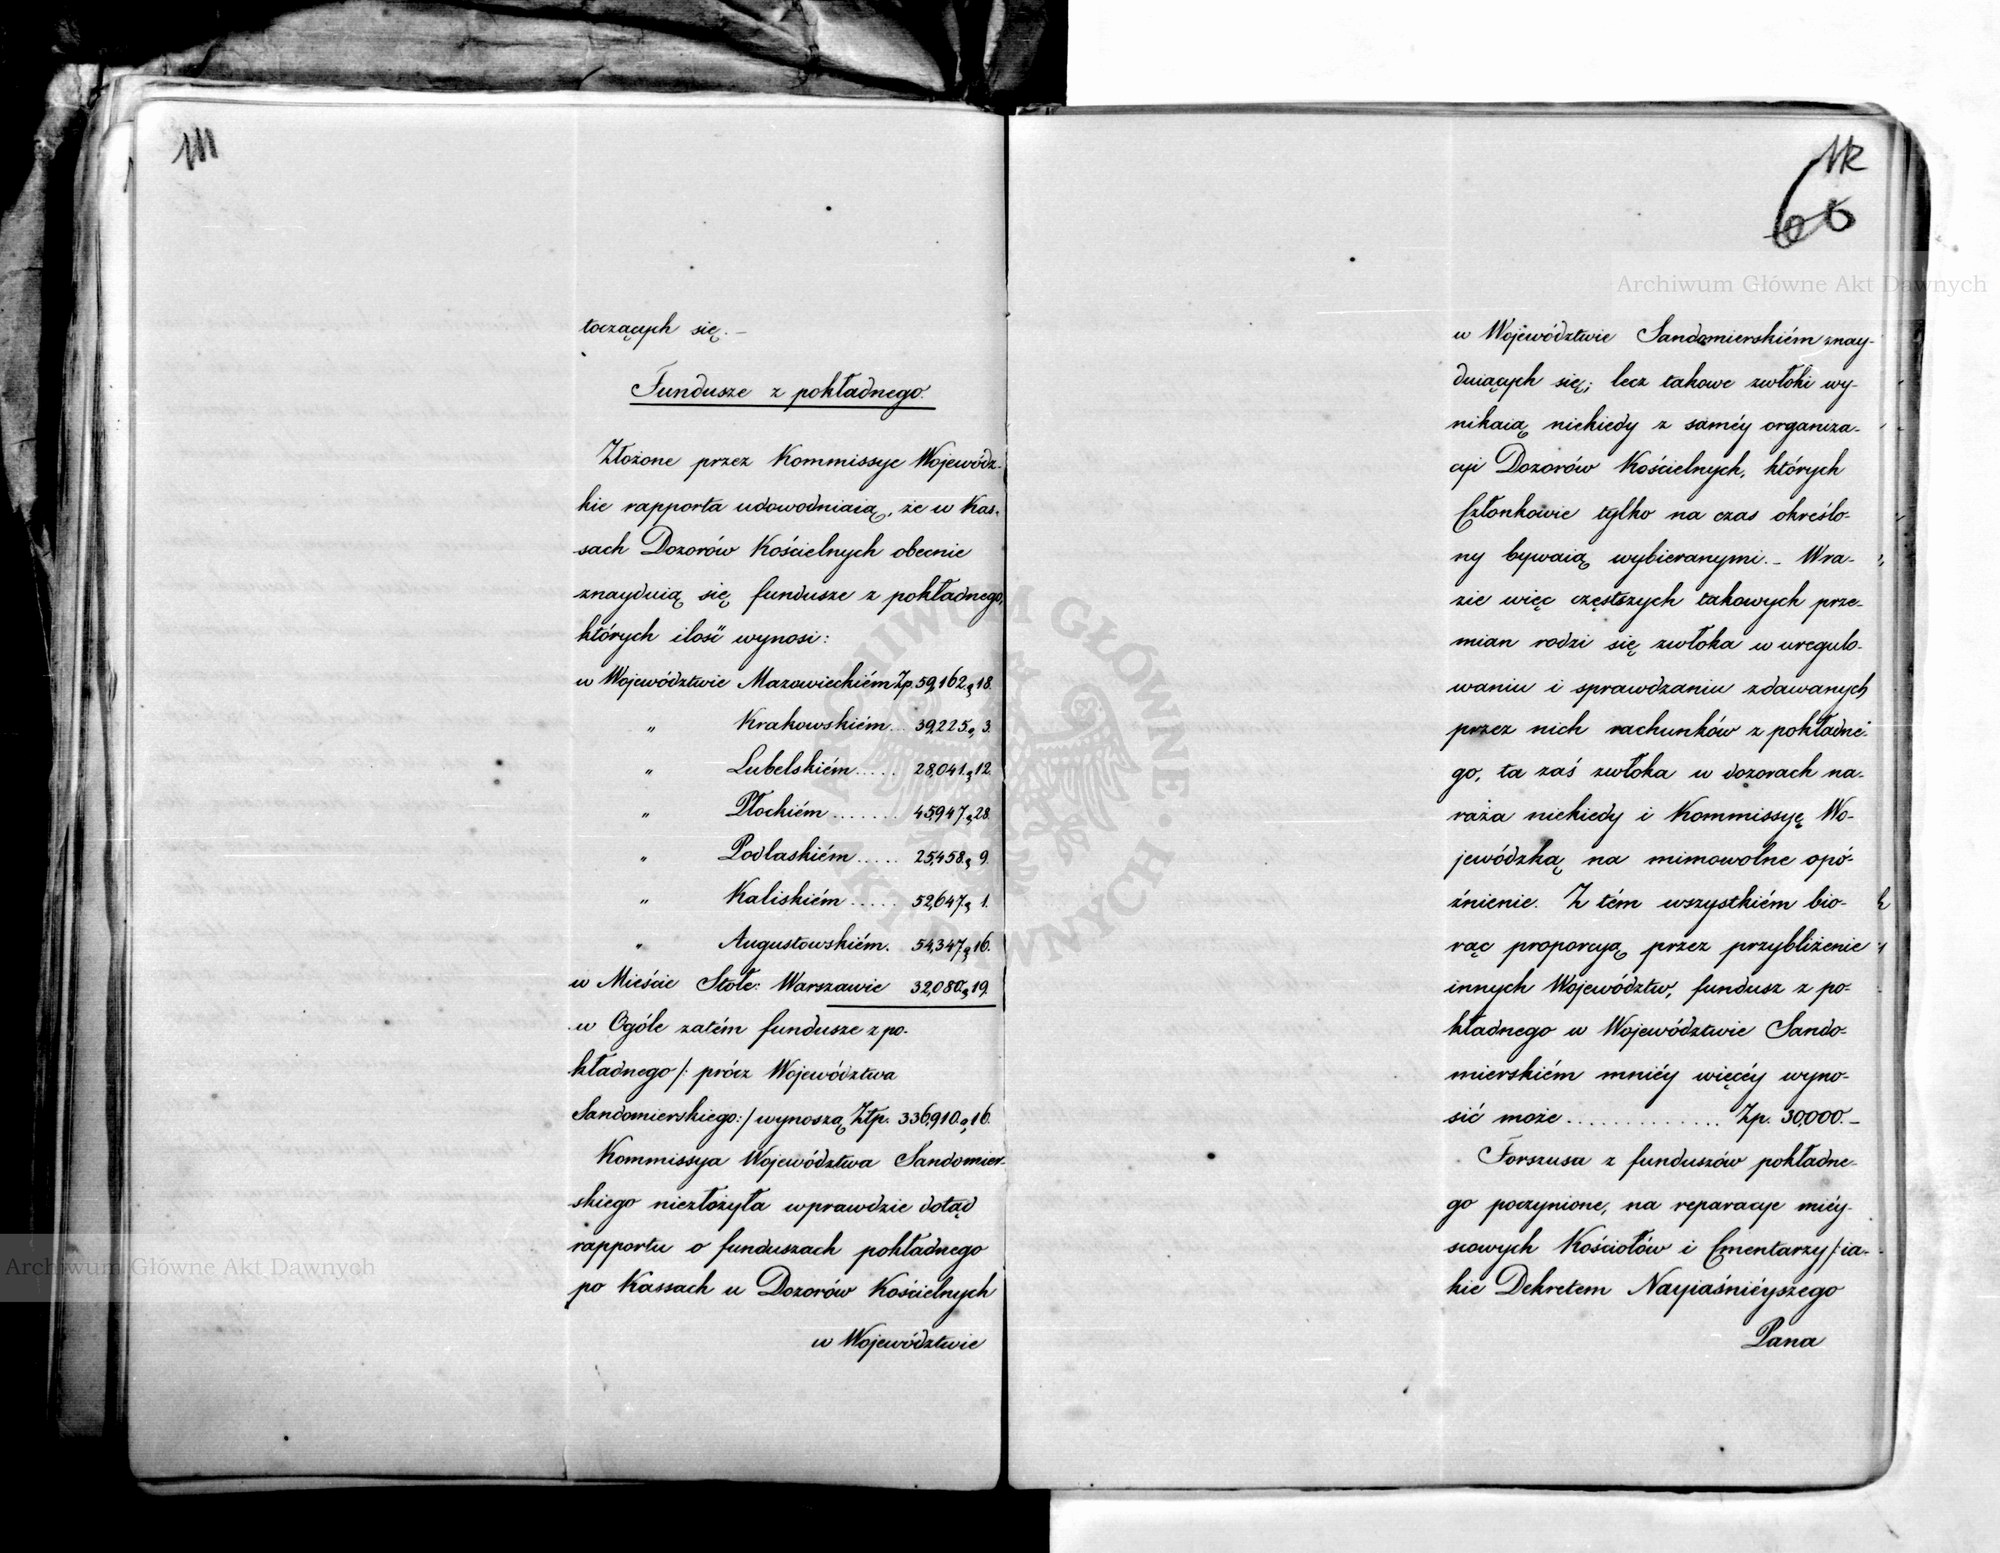 111
toczących się.–
Fundusze z pokładnego.
Złożone przez Kommissye Wojewódz-
kie rapporta udowodniaią, że w Kas-
sach Dozorów Kościelnych obecnie
znayduią się fundusze z pokładnego,
których ilość wynosi:
w Województwie Mazowieckiém Zp. 59,162 g 18.
" Krakowskiém... 39,225 g 3.
" Lubelskiém..... 28,041 g 12.
" Płockiém....... 45,947 g 28.
" Podlaskiém..... 25,458 g 9.
" Kaliskiém..... 52,647 g 1.
" Augustowskiém. 54,347 g 16.
w Mieście Stołe: Warszawie 32,080 g 19.
w Ogóle zatém fundusze z po-
kładnego /: prócz Województwa
Sandomierskiego:/ wynoszą Złp. 336,910 g 16.
Kommissya Województwa Sandomier-
skiego niezłożyła wprawdzie dotąd
rapportu o funduszach pokładnego
po Kassach u Dozorów Kościelnych
w Województwie
112
66
w Województwie Sandomierskiém znay-
duiących się; lecz takowe zwłoki wy-
nikaią niekiedy z saméy organiza-
cyi Dozorów Kościelnych, których
Członkowie tylko na czas okréślo-
ny bywaią wybieranymi.– W ra-
zie więc częstszych takowych prze-
mian rodzi się zwłoka w uregulo-
waniu i sprawdzaniu zdawanych
przez nich rachunków z pokładne-
go, ta zaś zwłoka w dozorach na-
raża niekiedy i Kommissyę Wo-
jewódzką na mimowolne opó-
źnienie. Z tém wszystkiém bio-
rąc proporcyą przez przybliżenie
innych Województw, fundusz z po-
kładnego w Województwie Sando-
mierskiém mniéy więcéy wyno-
sić może............. Zp. 30,000.–
Forszusa z funduszów pokładne-
go poczynione, na reparacye miéy-
scowych Kościołów i Cmentarzy /:ia-
kie Dekretem Nayiaśniéyszego
Pana
Archiwum Główne Akt Dawnych
Archiwum Główne Akt Dawnych
ARCHIWUM GŁÓWNE AKT DAWNYCH